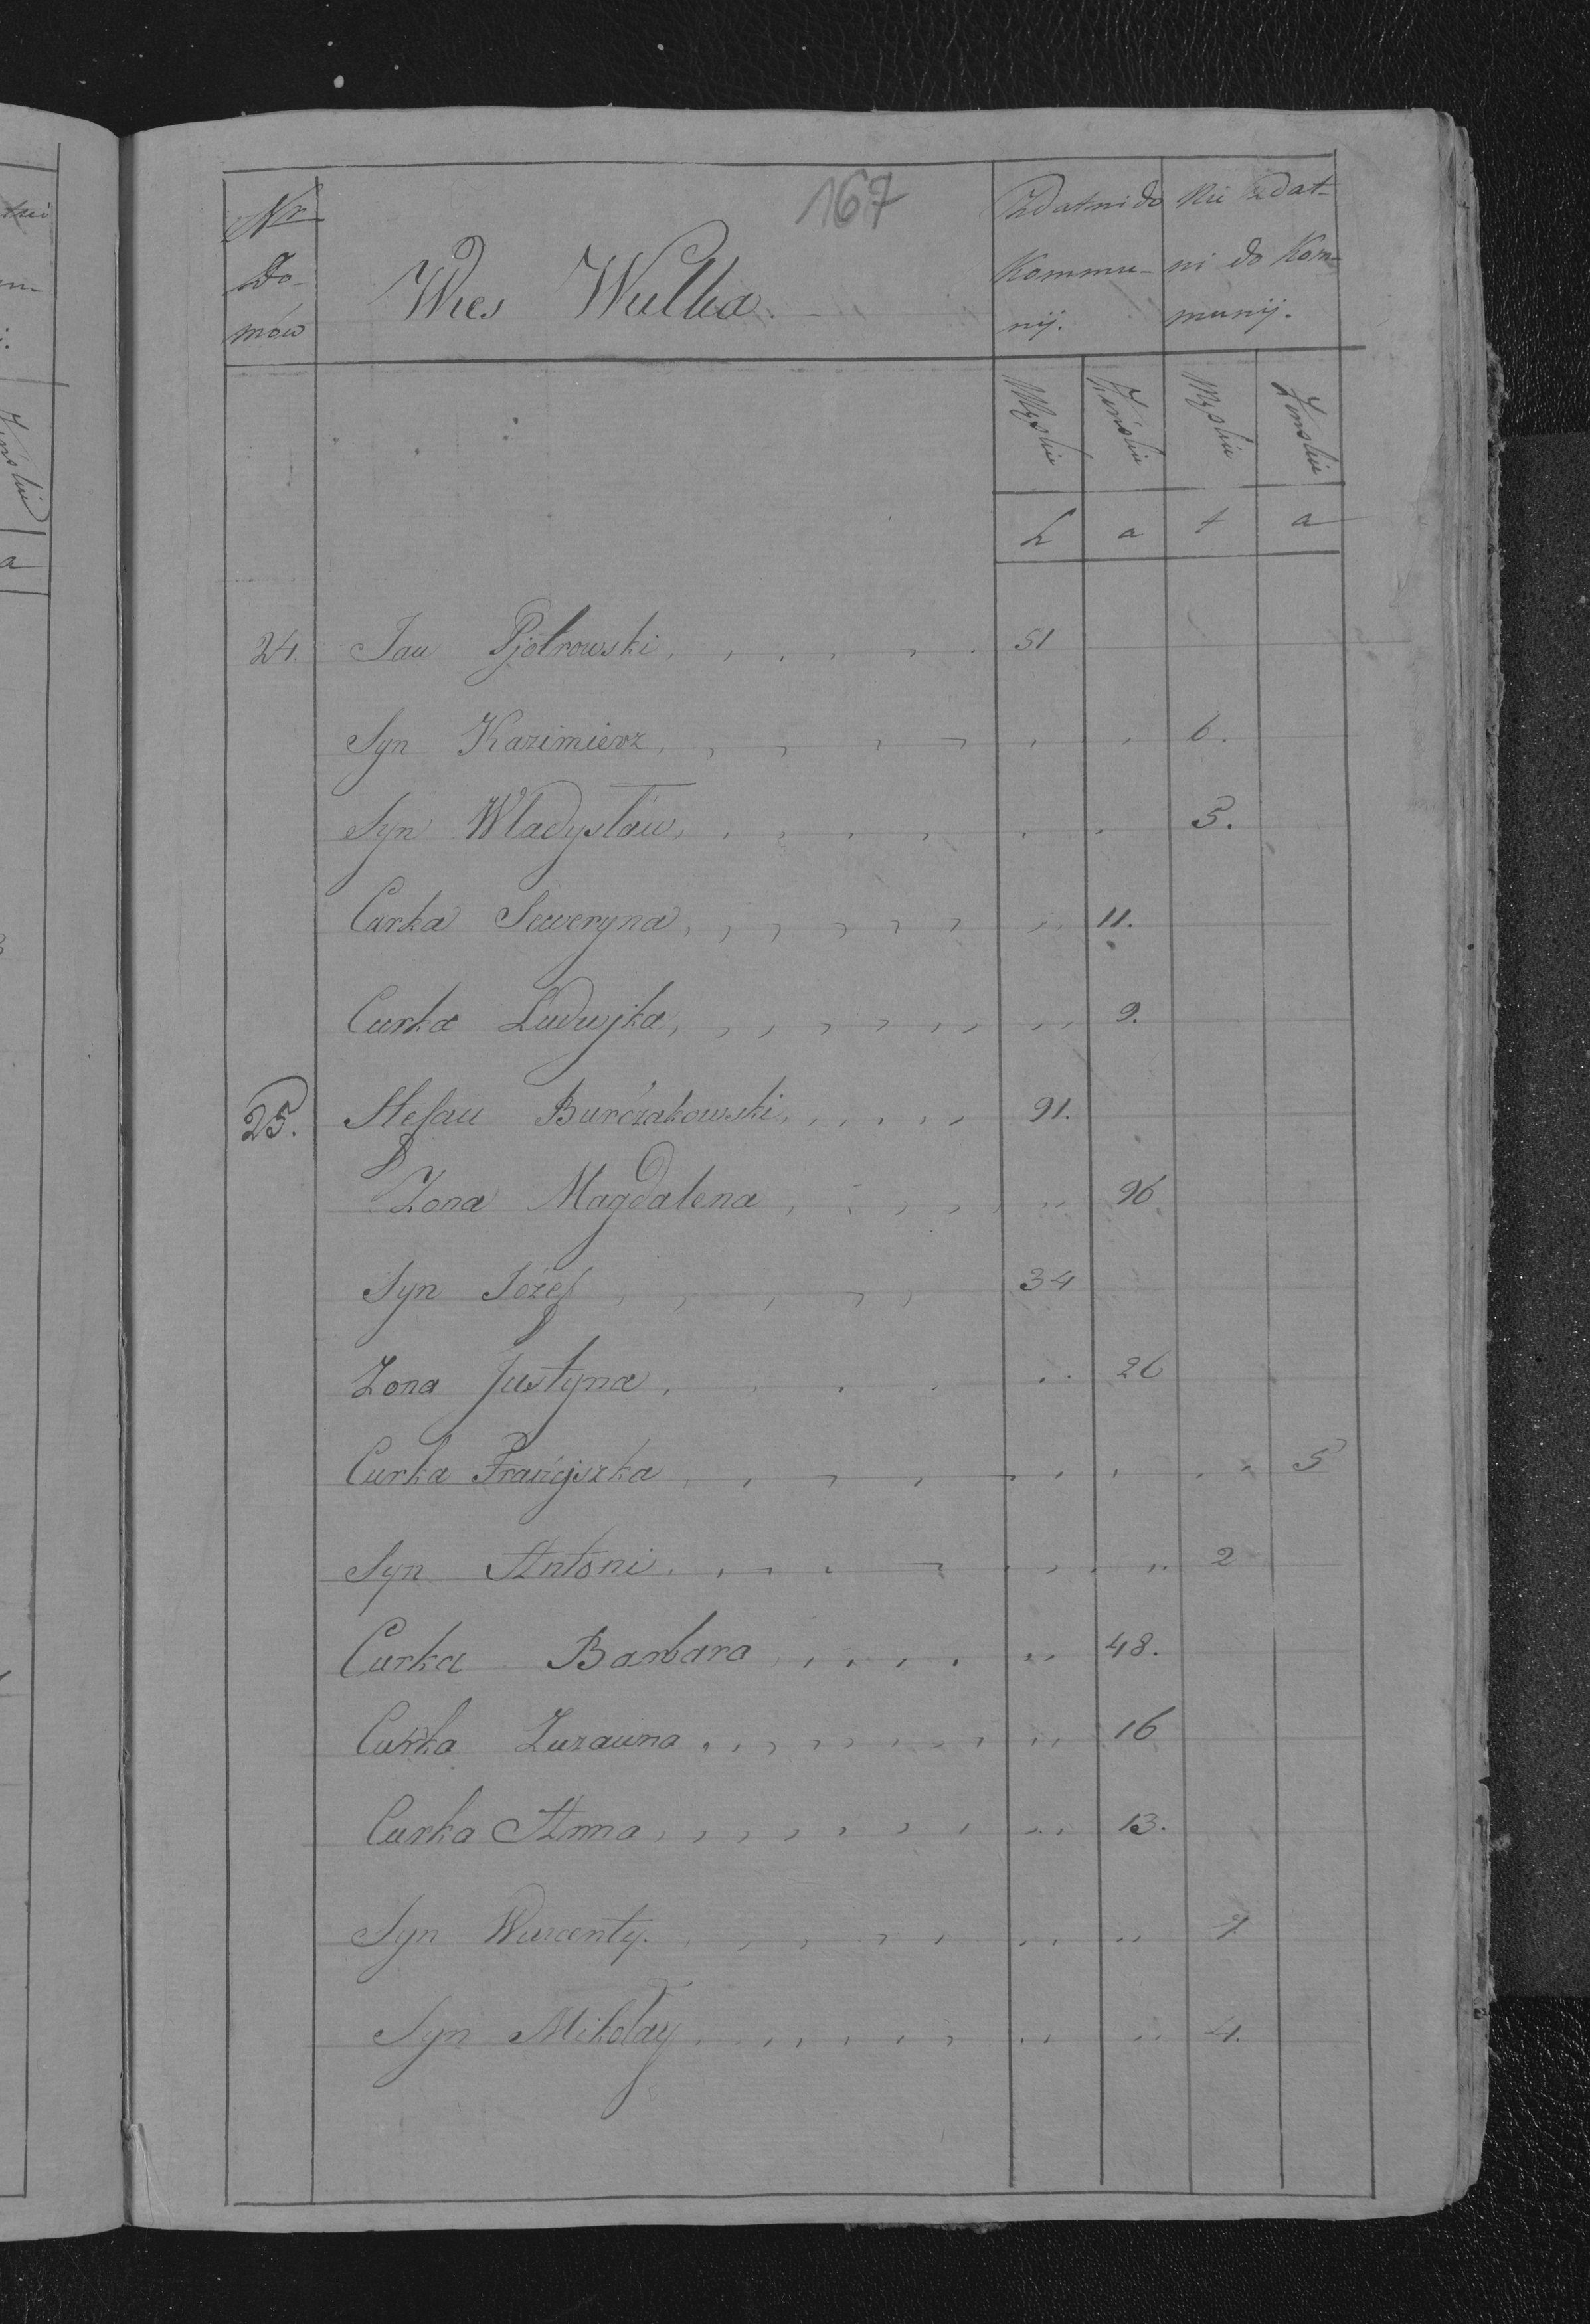 167
Nr Do- mów
Wies Wulka.
Zdatni do Kommu- nij.
Nie zdat- ni do Kom- munij.
Męskie Żeńskie Męskie Żenskie
L a t a
24. Jan Pjotrowski 51
Syn Kazimierz 6.
Syn Władysław 5.
Curka Seweryna 11.
Curka Ludwjka 9.
25. Stefan Burczakowski 91.
Zona Magdalena 96
Syn Józef 34
Zona Justyna 26
Curka Francjszka 5
Syn Antoni 2
Curka Barbara 48.
Curka Zuzanna 16
Curka Anna 13.
Syn Wincenty. 7.
Syn Mikołay 4.